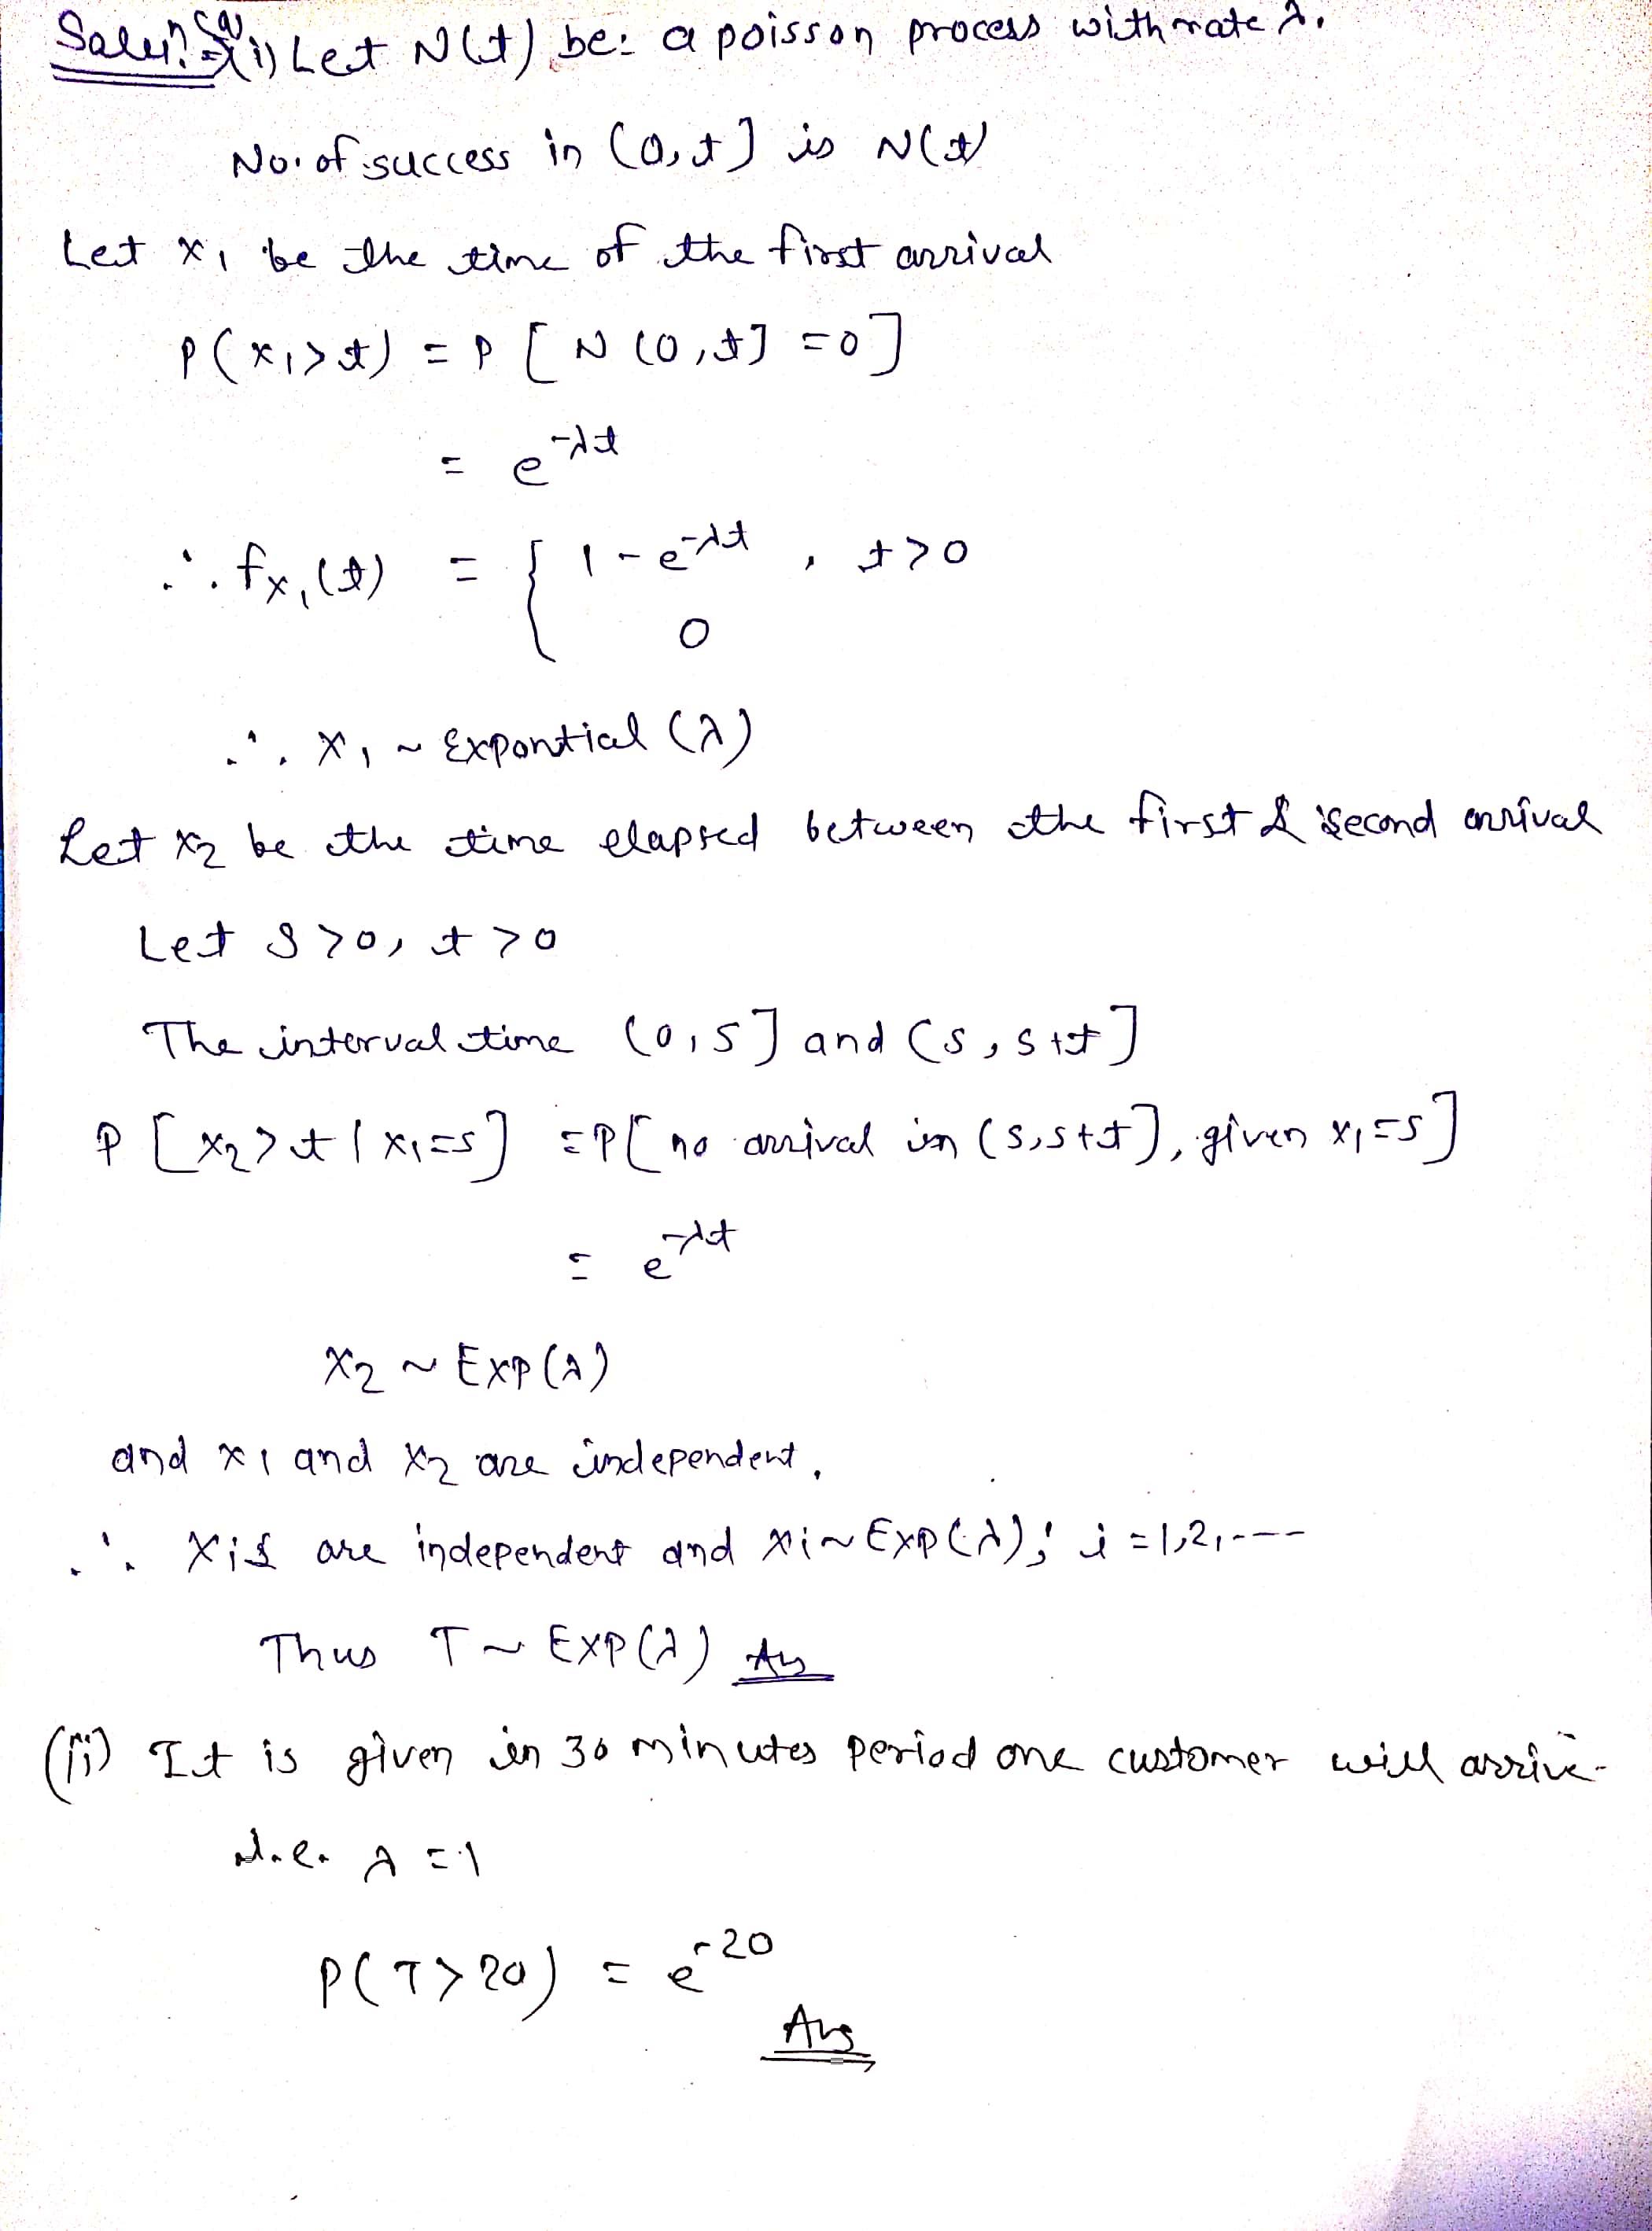 Soluⁿ (a) (i) Let N(t) be: a poisson process with rate λ.
No. of success in (0,t] is N(t)
Let x₁ be the time of the first arrival
P(x₁>t) = P [ N (0,t] =0]
= e^-λt
∴ fx₁(t) = { 1-e^-λt , t>0
0
∴ X₁ ~ Expontial (λ)
Let x₂ be the time elapsed between the first & second arrival
Let s>0, t>0
The interval time (0,s] and (s,s+t]
P [x₂>t | x₁=s] =P[ no arrival in (s,s+t], given x₁=s]
= e^-λt
X₂ ~ EXP(λ)
and x₁ and x₂ are independent.
∴ Xis are independent and xi~ Exp(λ); i =1,2,---
Thus T ~ EXP(λ) Ans
(ii) It is given in 30 minutes period one customer will arrive.
i.e. λ =1
P(T>20) = e^-20
Ans